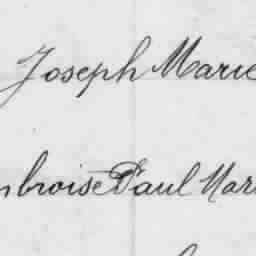 Joseph Marie
mbroise Paul Mari